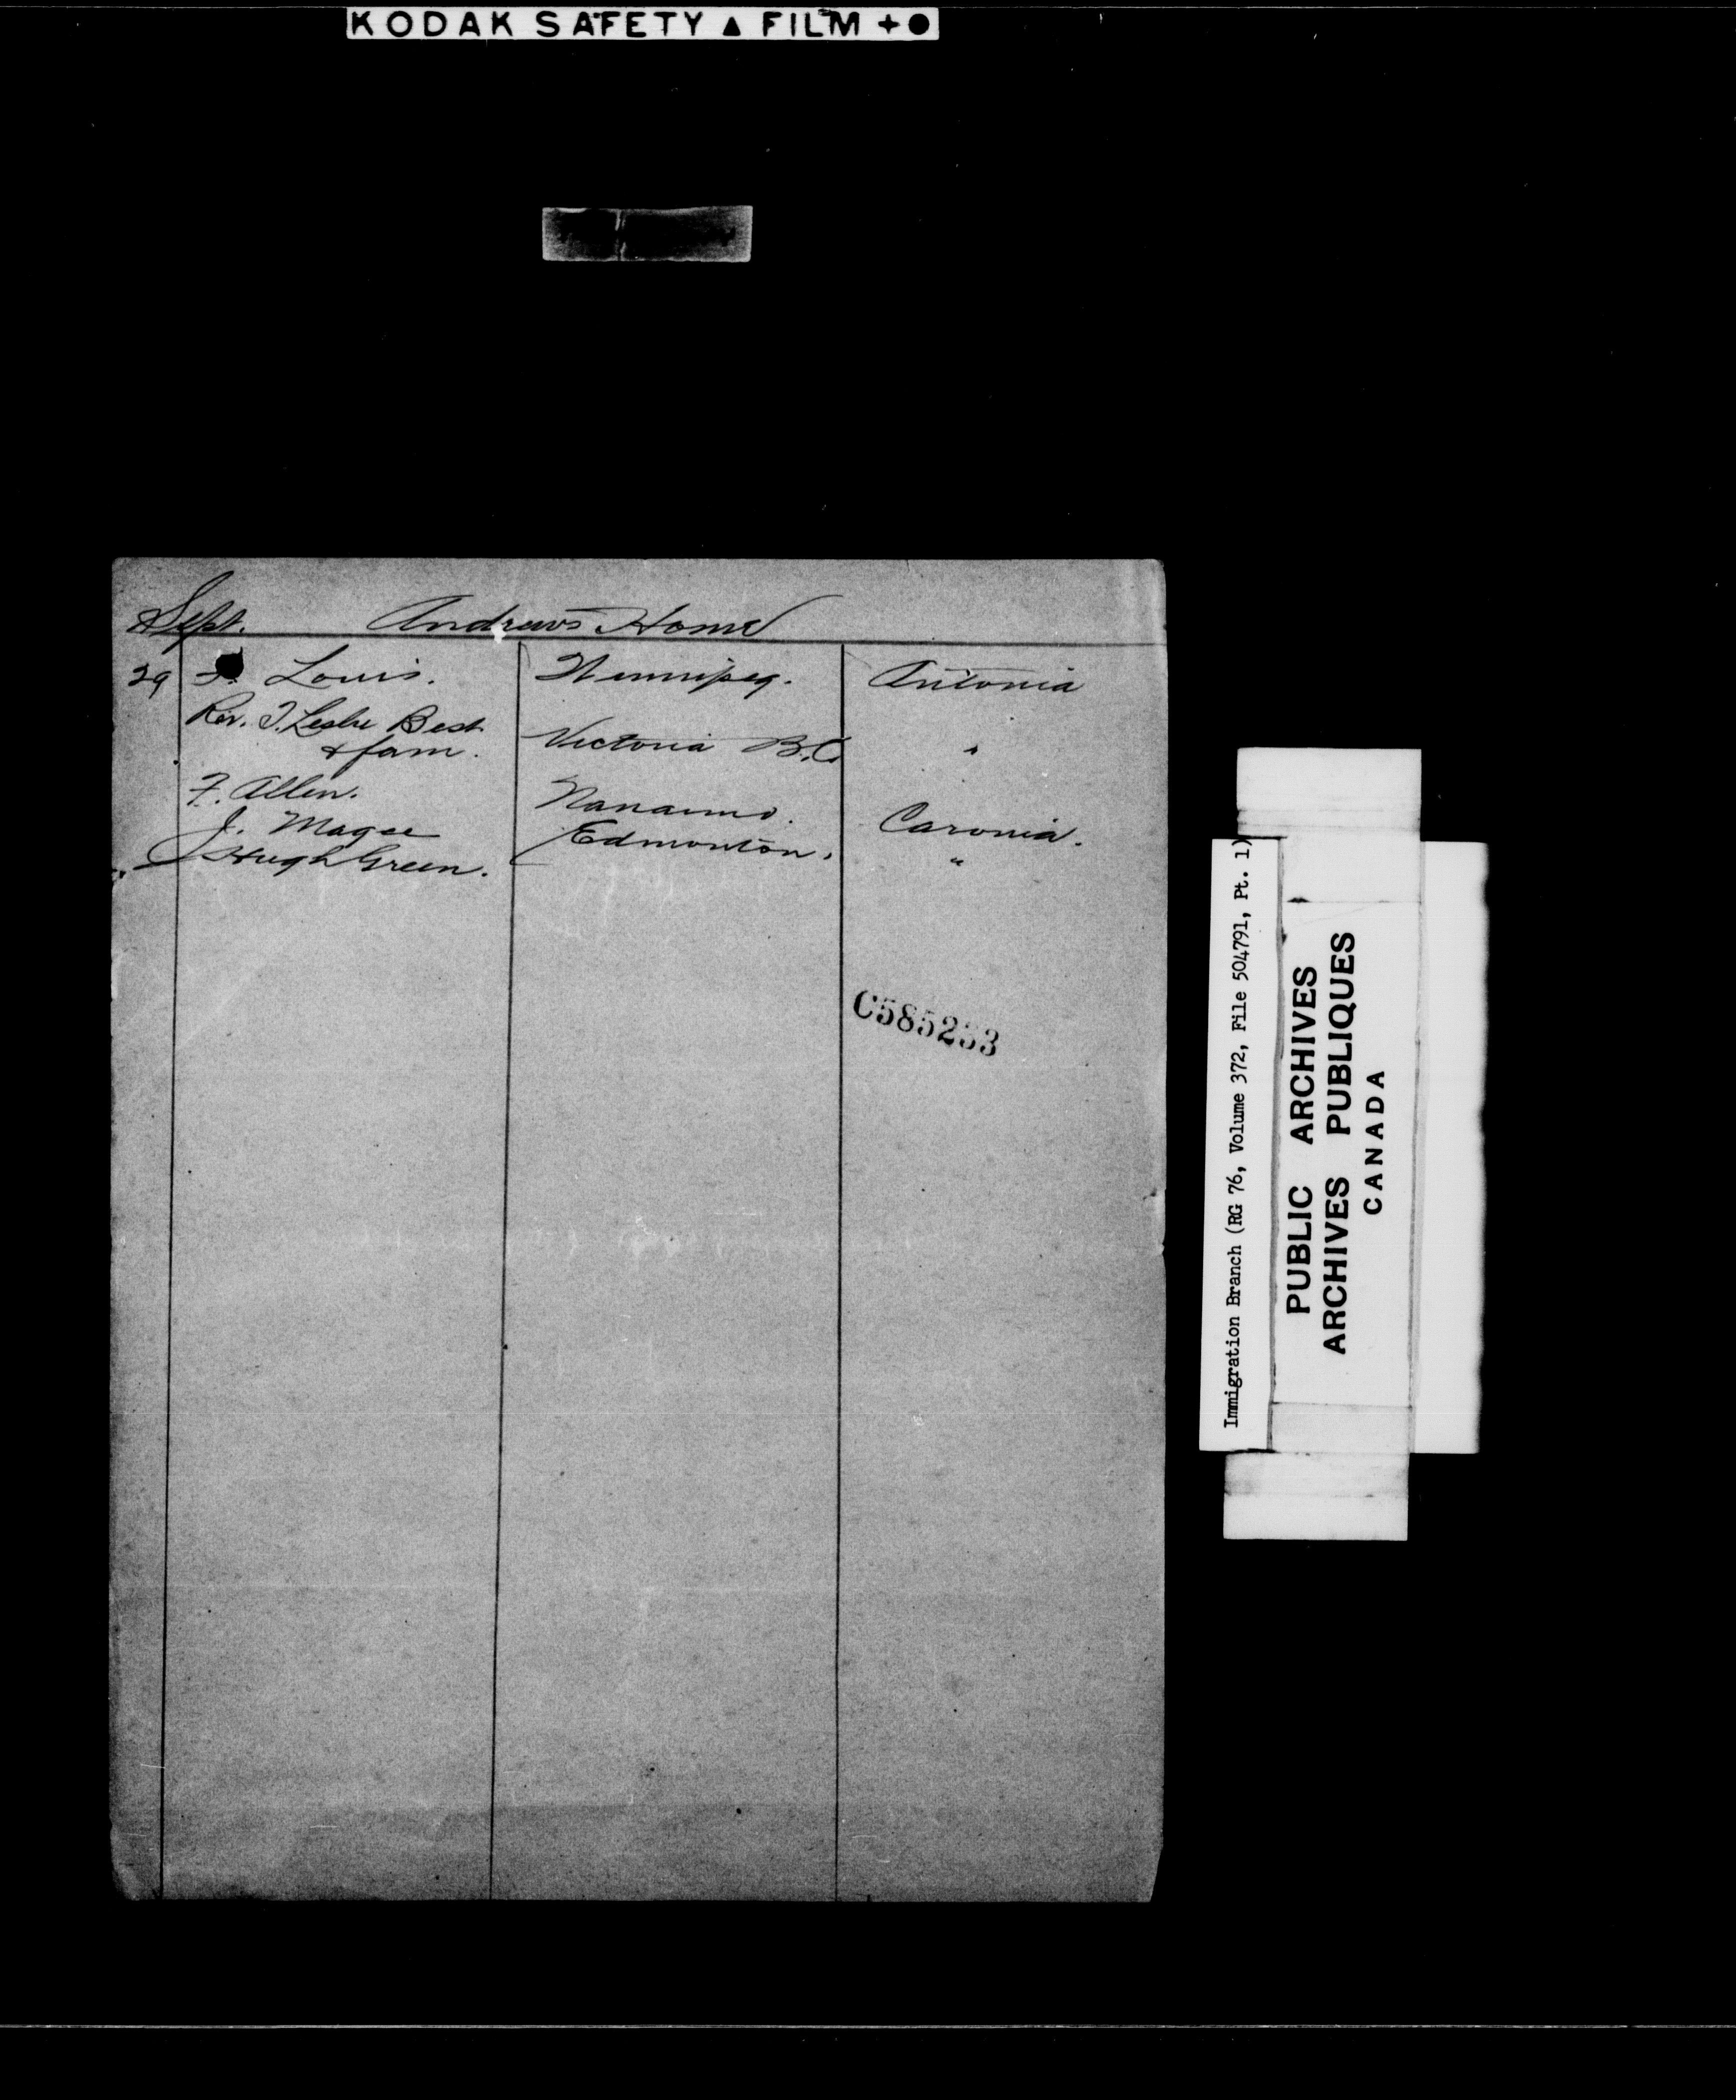 KODAK SAFETY ▲ FILM +●
Sept. Andrews Home
29 Louis. Winnipeg. Antonia
Rev. T. Leslie Best
& fam. Victoria B.C. "
F. Allen. Nanaimo.
J. Magee Edmonton. Caronia.
" Hugh Green. "
C585233
Immigration Branch (RG 76, Volume 372, File 504791, Pt. 1)
PUBLIC ARCHIVES
ARCHIVES PUBLIQUES
CANADA